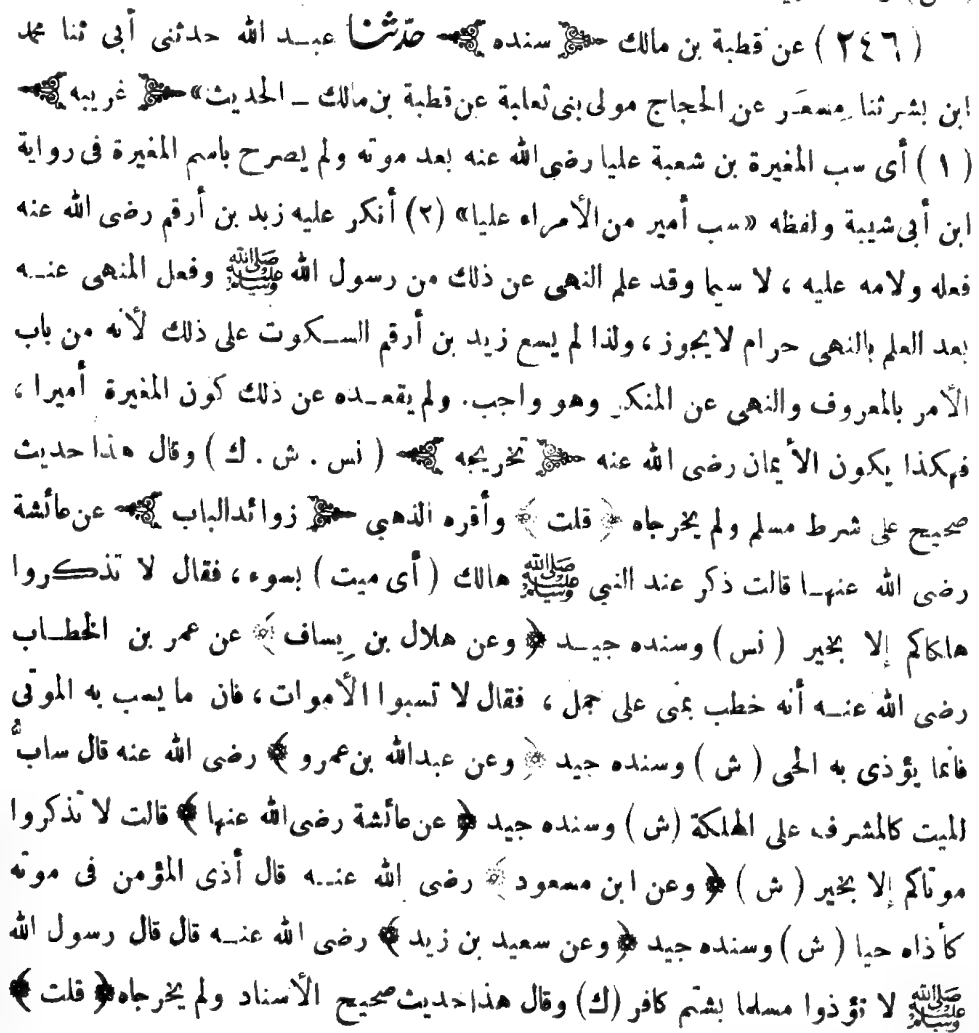 ( ٢٤٦ ) عن قطبة بن مالك ﴿ سنده ﴾ حدّثنا عبد الله حدثنى أبى ثنا محمد
ابن بشر ثنا مِسعَر عن الحجاج مولى بنى ثعلبة عن قطبة بن مالك ــ الحديث» ﴿ غريبه ﴾
( ١ ) أى سب المغيرة بن شعبة عليا رضى الله عنه بعد موته ولم يصرح باسم المغيرة فى رواية
ابن أبى شيبة ولفظه «سب أمير من الأمراء عليا» (٢) أنكر عليه زيد بن أرقم رضى الله عنه
فعله ولامه عليه ، لا سيما وقد علم النهى عن ذلك من رسول الله ﷺ وفعل المنهى عنه
بعد العلم بالنهى حرام لايجوز ، ولذا لم يسع زيد بن أرقم السكوت على ذلك لأنه من باب
الأمر بالمعروف والنهى عن المنكر وهو واجب. ولم يقعده عن ذلك كون المغيرة أميرا ،
فهكذا يكون الأيمان رضى الله عنه ﴿ تخريجه ﴾ ( نس . ش . ك ) وقال هذا حديث
صحيح على شرط مسلم ولم يخرجاه ﴿ قلت ﴾ وأقره الذهبي ﴿ زوائد الباب ﴾ عن عائشة
رضى الله عنها قالت ذكر عند النبي ﷺ هالك ( أى ميت ) بسوء ، فقال لا تذكروا
هلكاكم إلا بخير ( نس ) وسنده جيد ﴿ وعن هلال بن يِساف ﴾ عن عمر بن الخطاب
رضى الله عنه أنه خطب بمنى على جمل ، فقال لا تسبوا الأموات ، فان ما يسب به الموتى
فانما يؤذى به الحى ( ش ) وسنده جيد ﴿ وعن عبدالله بن عمرو ﴾ رضى الله عنه قال سابُّ
الميت كالمشرف على الهلكة (ش ) وسنده جيد ﴿ عن عائشة رضى الله عنها ﴾ قالت لا تذكروا
موتاكم إلا بخير ( ش ) ﴿ وعن ابن مسعود ﴾ رضى الله عنه قال أذى المؤمن فى موته
كأذاه حيا ( ش ) وسنده جيد ﴿ وعن سعيد بن زيد ﴾ رضى الله عنه قال قال رسول الله
ﷺ لا تؤذوا مسلما بشتم كافر (ك) وقال هذا حديث صحيح الأسناد ولم يخرجاه ﴿ قلت ﴾